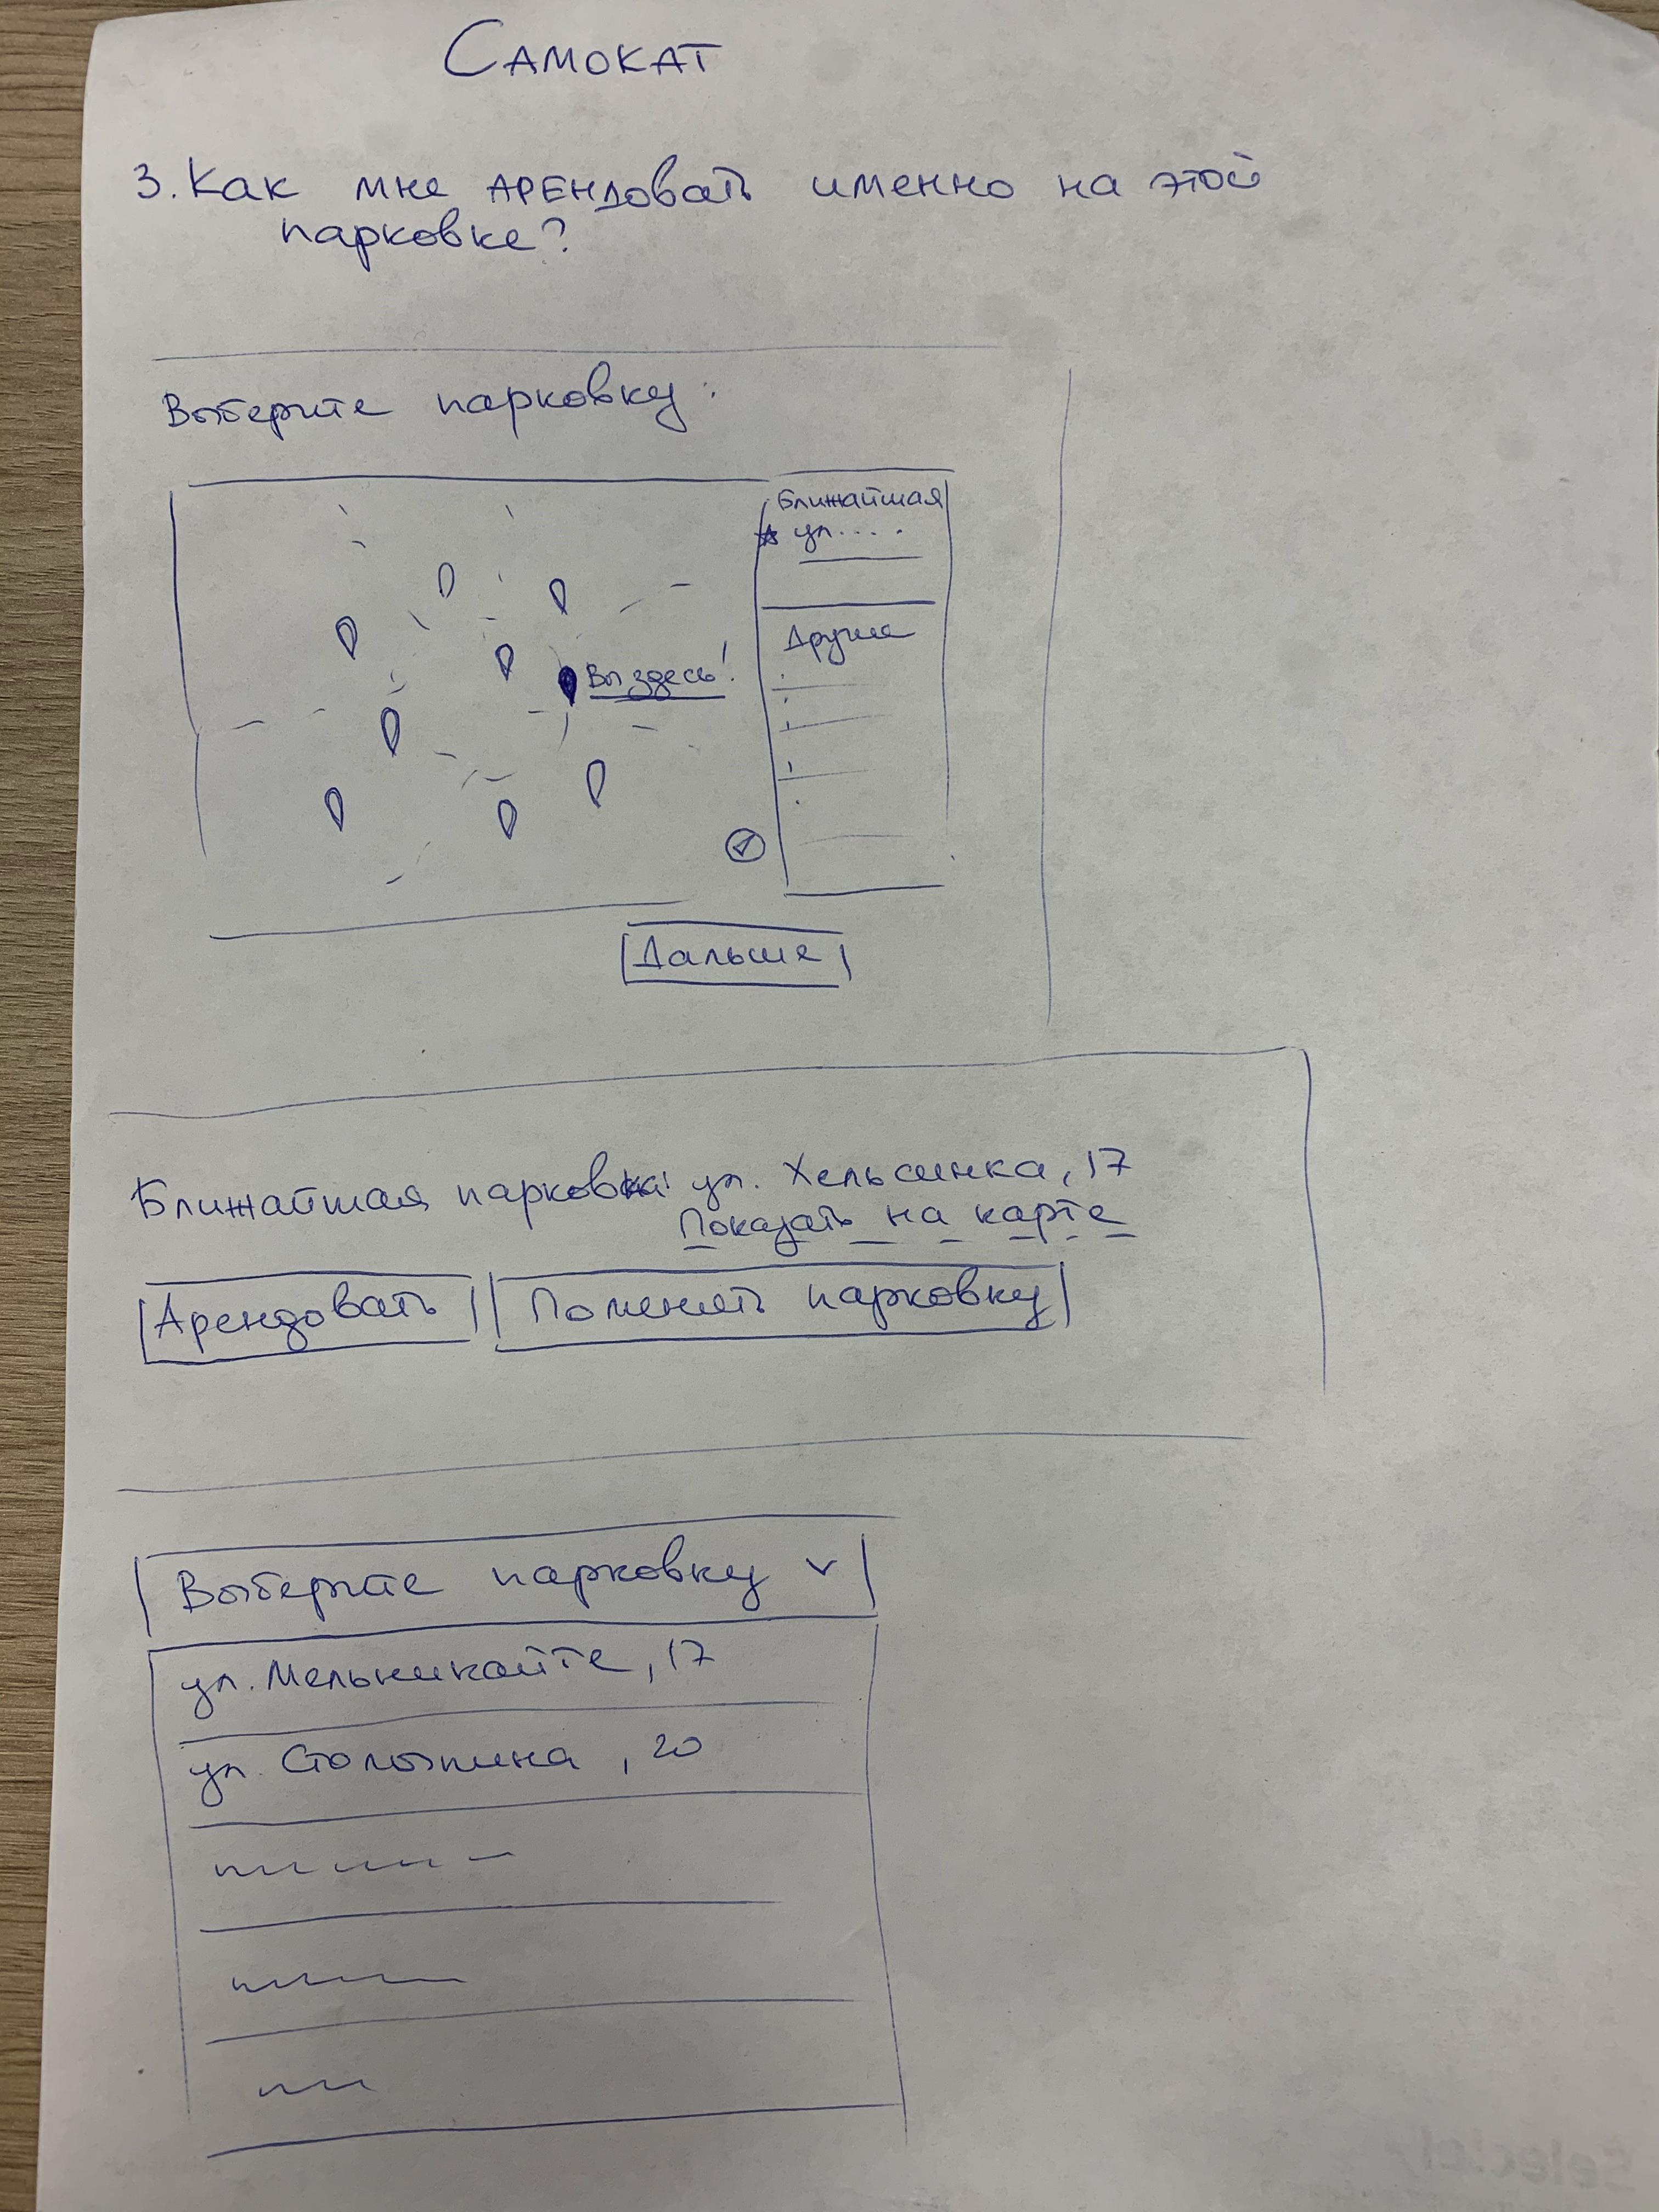 Самокат
3. Как мне арендовать именно на этой
парковке?
Выберите парковку:
Ближайшая
ул....
Другие
Вы здесь!
Дальше
Ближайшая парковка: ул. Хельсинка, 17
Показать на карте
Арендовать
Поменять парковку
Выберите парковку
ул. Мельникайте, 17
ул. Столыпина, 20
Selectel